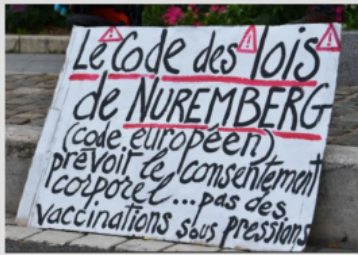 Le Code des lois
de NUREMBERG
(code européen)
prévoir le consentement
corporel... pas des
vaccinations sous pressions